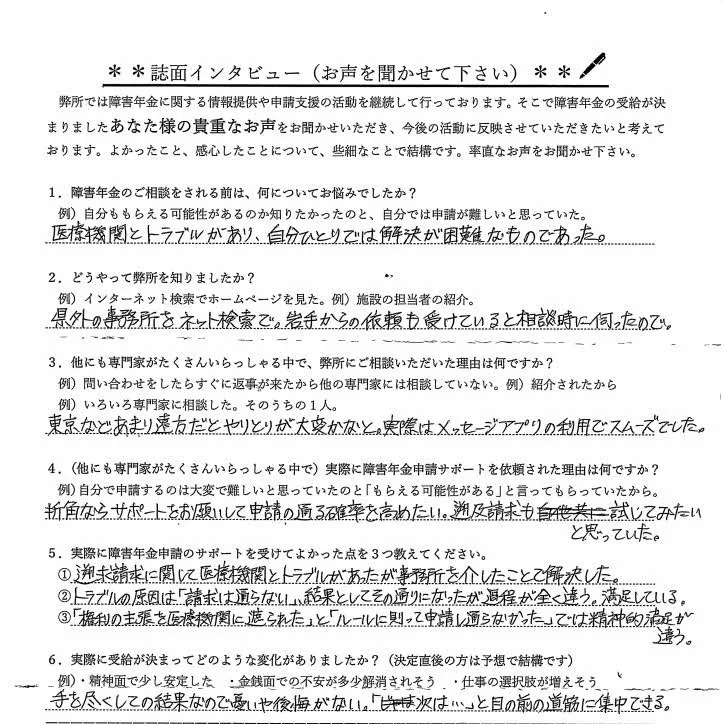 ＊＊誌面インタビュー（お声を聞かせて下さい）＊＊
弊所では障害年金に関する情報提供や申請支援の活動を継続して行っております。そこで障害年金の受給が決
まりましたあなた様の貴重なお声をお聞かせいただき、今後の活動に反映させていただきたいと考えて
おります。よかったこと、感心したことについて、些細なことで結構です。率直なお声をお聞かせ下さい。
1．障害年金のご相談をされる前は、何についてお悩みでしたか？
例）自分ももらえる可能性があるのか知りたかったのと、自分では申請が難しいと思っていた。
医療機関とトラブルがあり、自分ひとりでは解決が困難なものであった。
2．どうやって弊所を知りましたか？
例）インターネット検索でホームページを見た。例）施設の担当者の紹介。
県外の事務所をネット検索で。岩手からの依頼も受けていると相談時に伺ったので。
3．他にも専門家がたくさんいらっしゃる中で、弊所にご相談いただいた理由は何ですか？
例）問い合わせをしたらすぐに返事が来たから他の専門家には相談していない。例）紹介されたから
例）いろいろ専門家に相談した。そのうちの1人。
東京などあまり遠方だとやりとりが大変かなと。実際はメッセージアプリの利用でスムーズでした。
4．（他にも専門家がたくさんいらっしゃる中で）実際に障害年金申請サポートを依頼された理由は何ですか？
例）自分で申請するのは大変で難しいと思っていたのと「もらえる可能性がある」と言ってもらっていたから。
折角ならサポートをお願いして申請の通る確率を高めたい。遡及請求も試してみたい
と思っていた。
5．実際に障害年金申請のサポートを受けてよかった点を3つ教えてください。
①遡求請求に関して医療機関とトラブルがあったが事務所を介したことで解決した。
②トラブルの原因は「請求は通らない」、結果としてその通りになったが過程が全く違う。満足している。
③「権利の主張を医療機関に遮られた」と「ルールに則って申請し通らなかった」では精神的満足が
違う。
6．実際に受給が決まってどのような変化がありましたか？（決定直後の方は予想で結構です）
例）・精神面で少し安定した　・金銭面での不安が多少解消されそう　・仕事の選択肢が増えそう
手を尽くしての結果なので憂いや後悔がない。「次は…」と目の前の道筋に集中できる。